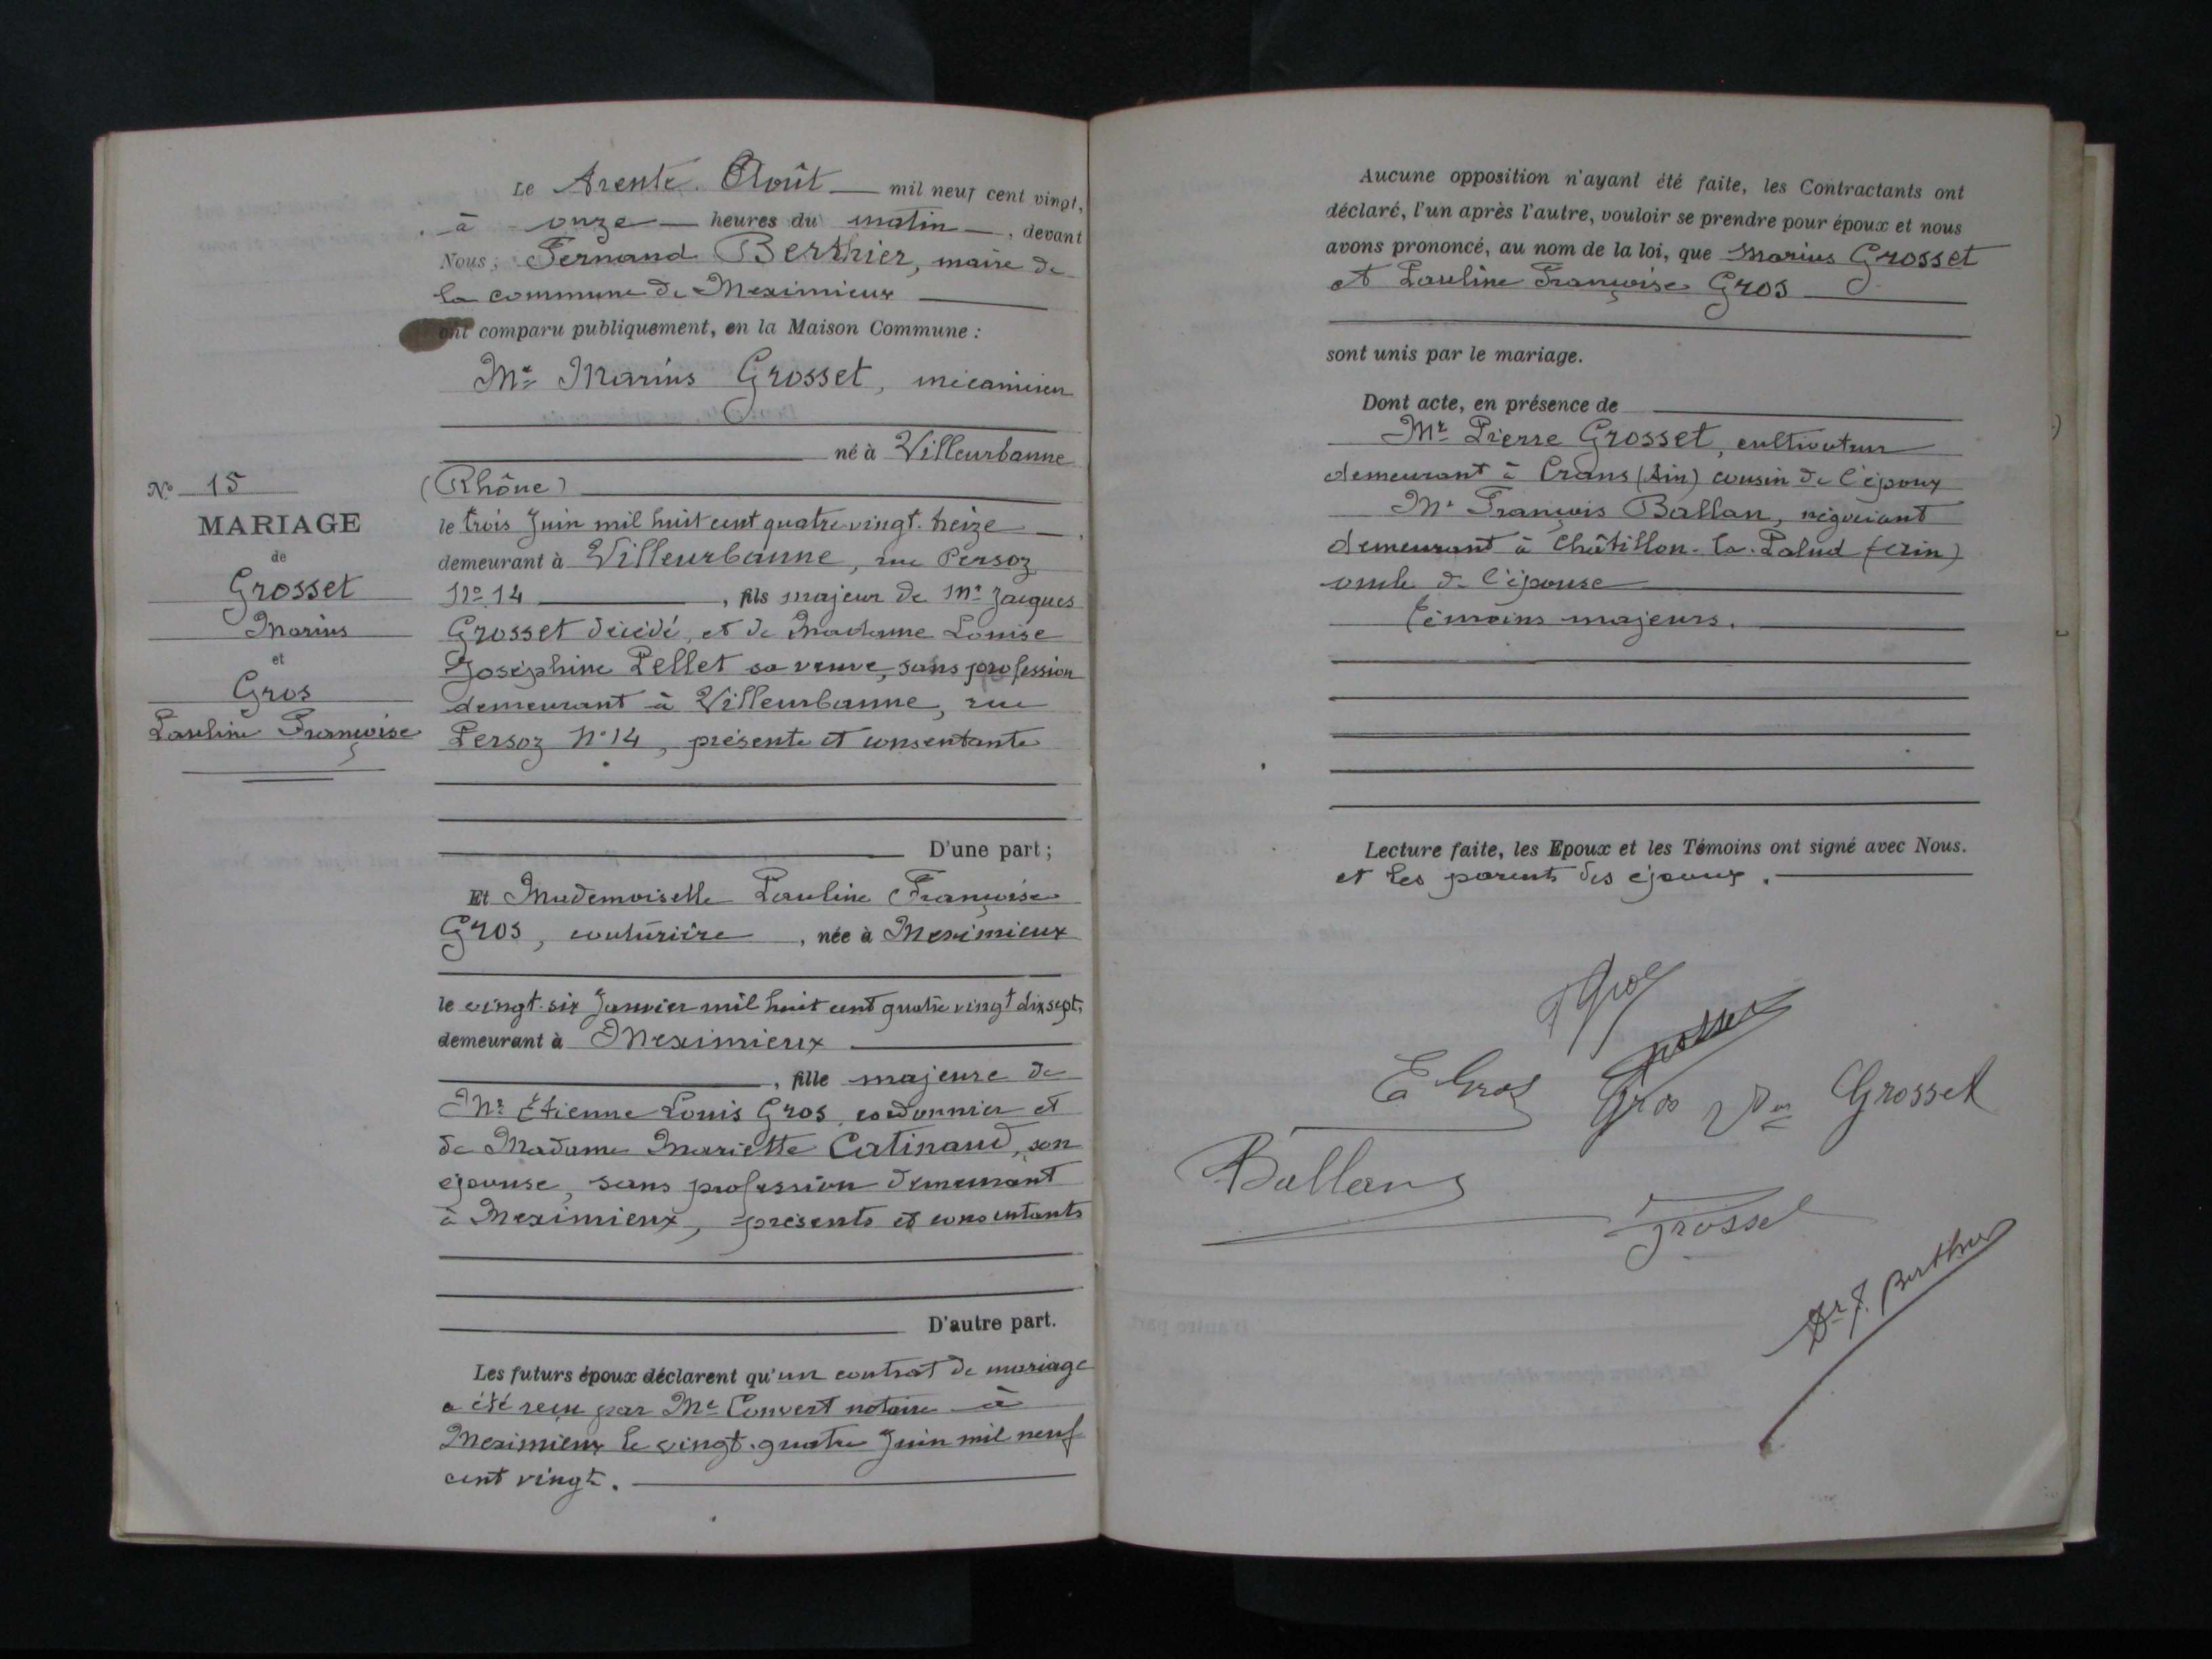 Le trente Août mil neuf cent vingt,
à onze heures du matin, devant
Nous, Fernand Berthier, maire de
la commune de Meximieux
ont comparu publiquement, en la Maison Commune :
Mr Marius Grosset, mécanicien
né à Villeurbanne
(Rhône)
le trois Juin mil huit cent quatre vingt treize,
demeurant à Villeurbanne, rue Persoz
No 14, fils majeur de Mr Jacques
Grosset décédé, et de Madame Louise
Joséphine Pellet sa veuve, sans profession
demeurant à Villeurbanne, rue
Persoz No 14, présente et consentante
D'une part ;
Et Mademoiselle Pauline Françoise
Gros, couturière, née à Meximieux
le vingt-six Janvier mil huit cent quatre vingt dix sept,
demeurant à Meximieux
, fille majeure de
Mr Étienne Louis Gros, cordonnier et
de Madame Mariette Catinaud, son
épouse, sans profession demeurant
à Meximieux, présents et consentants
D'autre part.
Les futurs époux déclarent qu'un contrat de mariage
a été reçu par Me Convert notaire à
Meximieux le vingt-quatre Juin mil neuf
cent vingt.
No 15
MARIAGE
de
Grosset
Marius
et
Gros
Pauline Françoise
Aucune opposition n'ayant été faite, les Contractants ont
déclaré, l'un après l'autre, vouloir se prendre pour époux et nous
avons prononcé, au nom de la loi, que Marius Grosset
et Pauline Françoise Gros
sont unis par le mariage.
Dont acte, en présence de
Mr Pierre Grosset, cultivateur
demeurant à Crans (Ain) cousin de l'époux
Mr François Ballan, négociant
demeurant à Châtillon-la-Palud (Ain)
oncle de l'épouse
Témoins majeurs.
Lecture faite, les Epoux et les Témoins ont signé avec Nous.
et les parents des époux.
P Gros
Grosset
E Gros
Gros
Vve Grosset
Ballan
Grosset
Dr F. Berthier